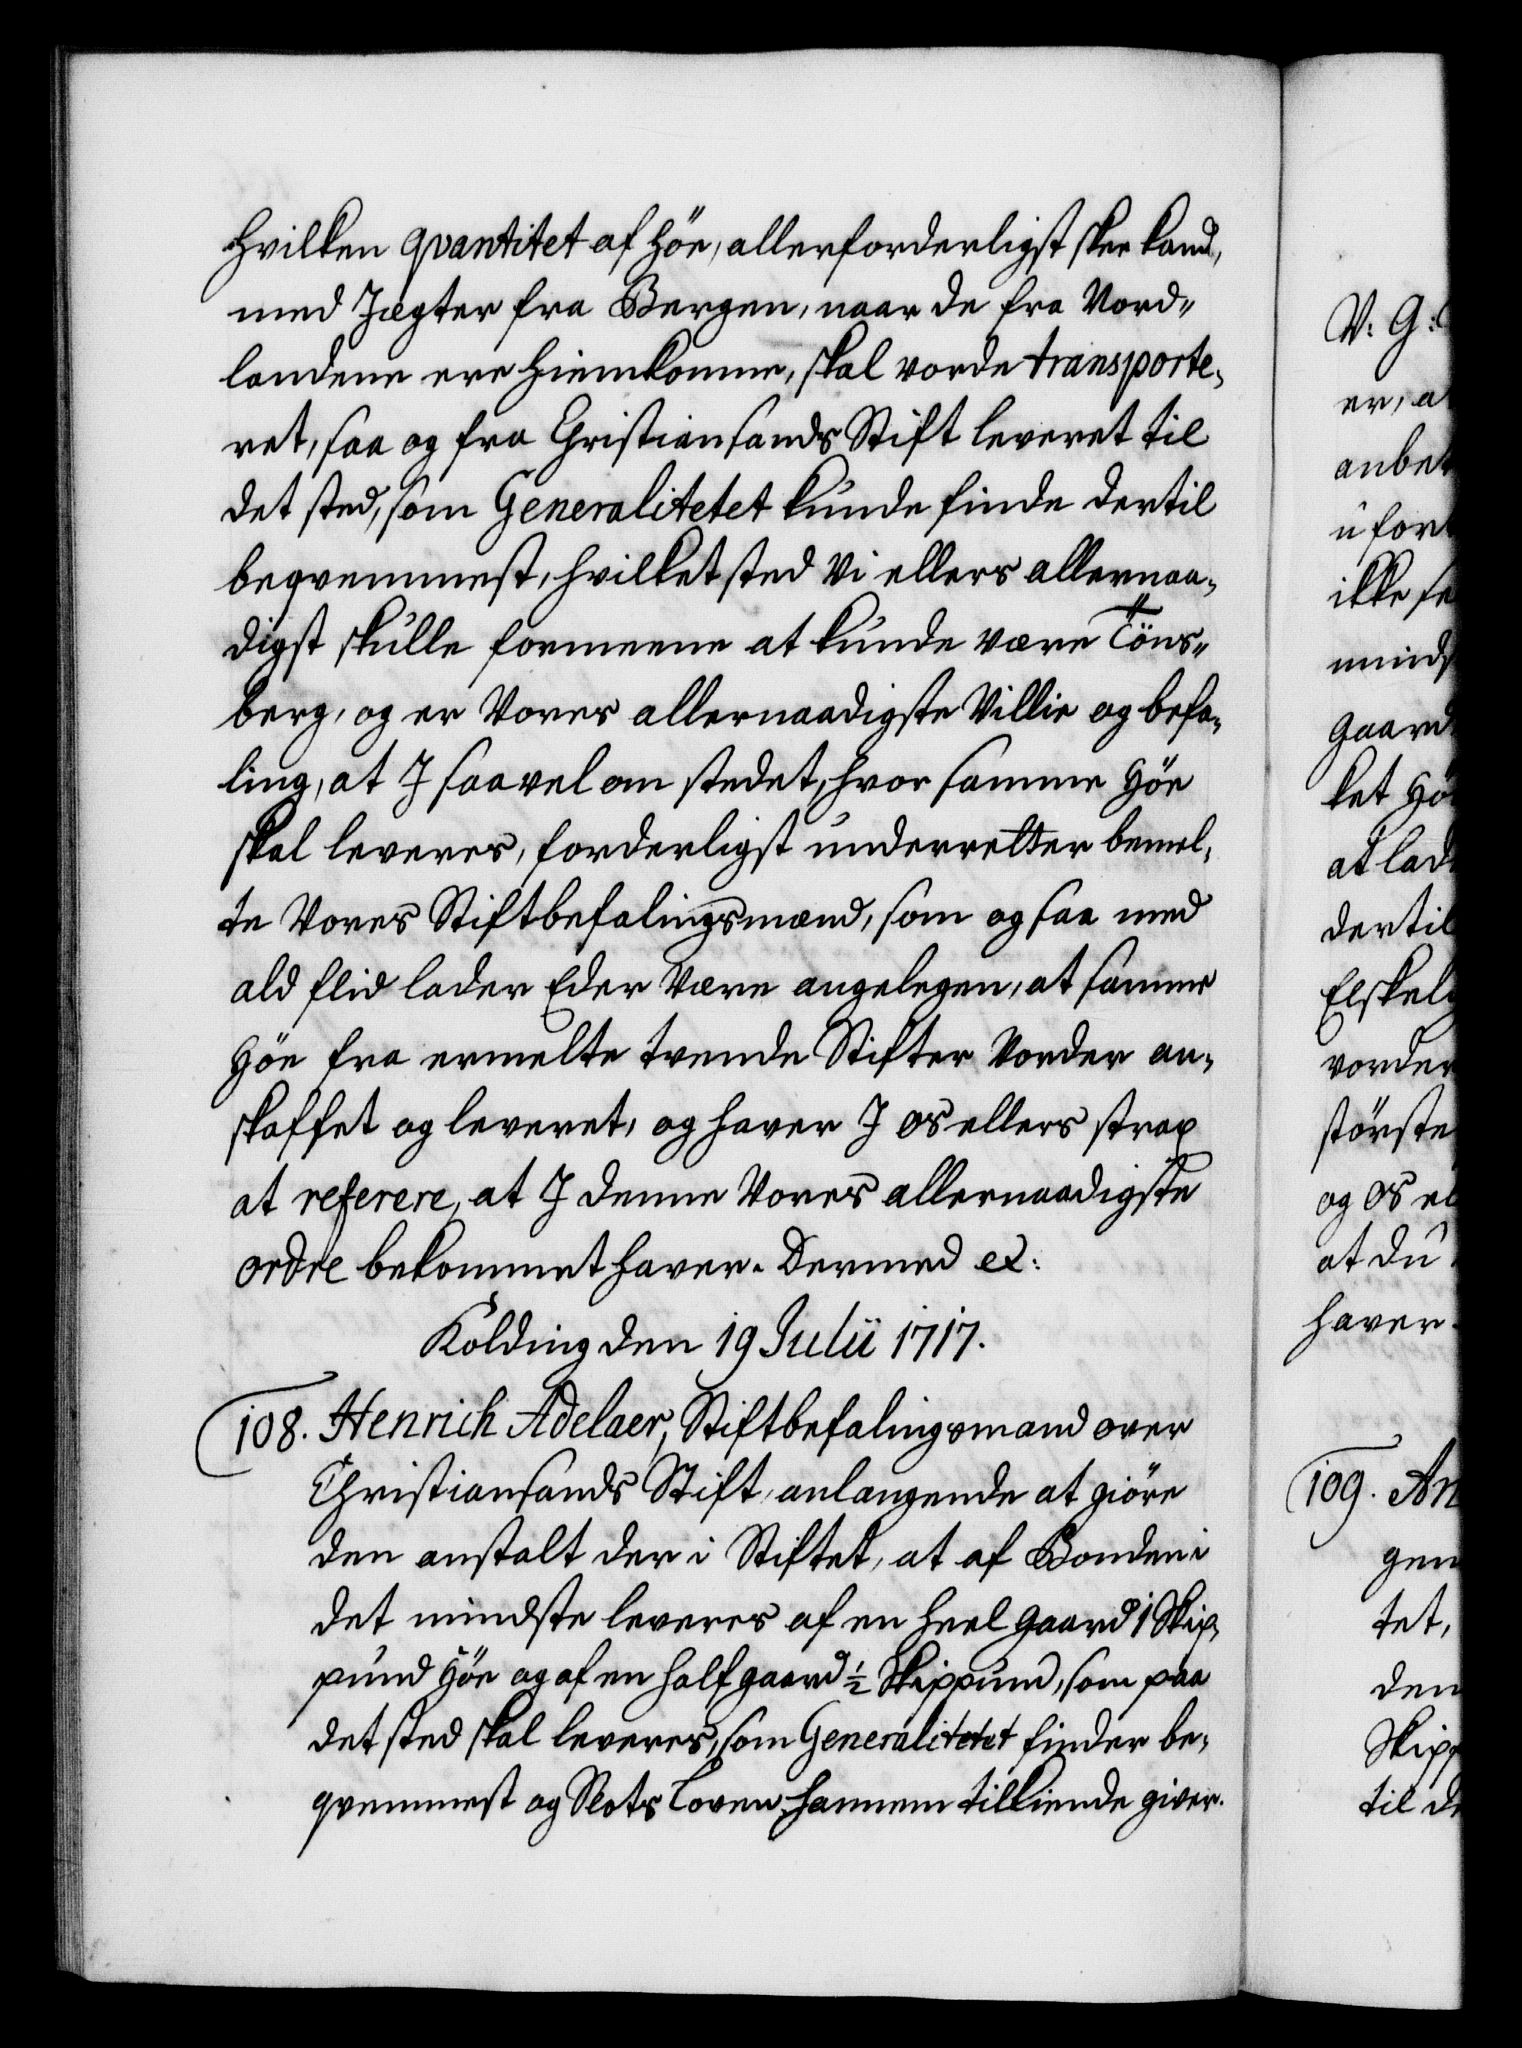 hvilken qvantitet af Höe, allerforderligst skee kand,
med Jægter fra Bergen, naar de fra Nord„
landene ere hiemkomne, skal vorde transporte„
ret, saa og fra Christiansands Stift leveret til
det sted, som Generalitetet kunde finde dertil
beqvemmest, hvilket sted Vi ellers allernaa„
digst skulle formeene at kunde være Töns„
berg, og er Vores allernaadigste Villie og befa„
ling, at J saavel om stedet, hvor samme Höe
skal leveres, forderligst underretter bemel„
te Vores Stiftbefalingsmænd, som og saa med
ald flid lader Eder være angelegen, at samme
Höe fra ermelte tvende Stifter vorder an„
skaffet og leveret, og haver J os ellers strax
at referere, at J denne Vores allernaadigste
ordre bekommet haver. Dermed &:
Kolding den 19 Julii 1717.
108. Henrich Adelaer, Stiftbefalingsmand over
Christiansands Stift, anlangende at giöre
den anstalt der i Stiftet, at af Bonden i
det mindste leveres af en heel gaard 1 Skip„
pund Höe og af en half gaard ½ Skippund, som paa
det sted skal leveres, som Generalitetet finder be„
qvemmest og Slots Loven hannem tilkiende giver.
V: G:
er, a
anbet
ufor
ikke se
minds
gaard
ket Hö
at lad
dertil
Elskel
vorder
störste
og os el
at du
haver.
109. An
gen
tet,
den
Skipp
til de